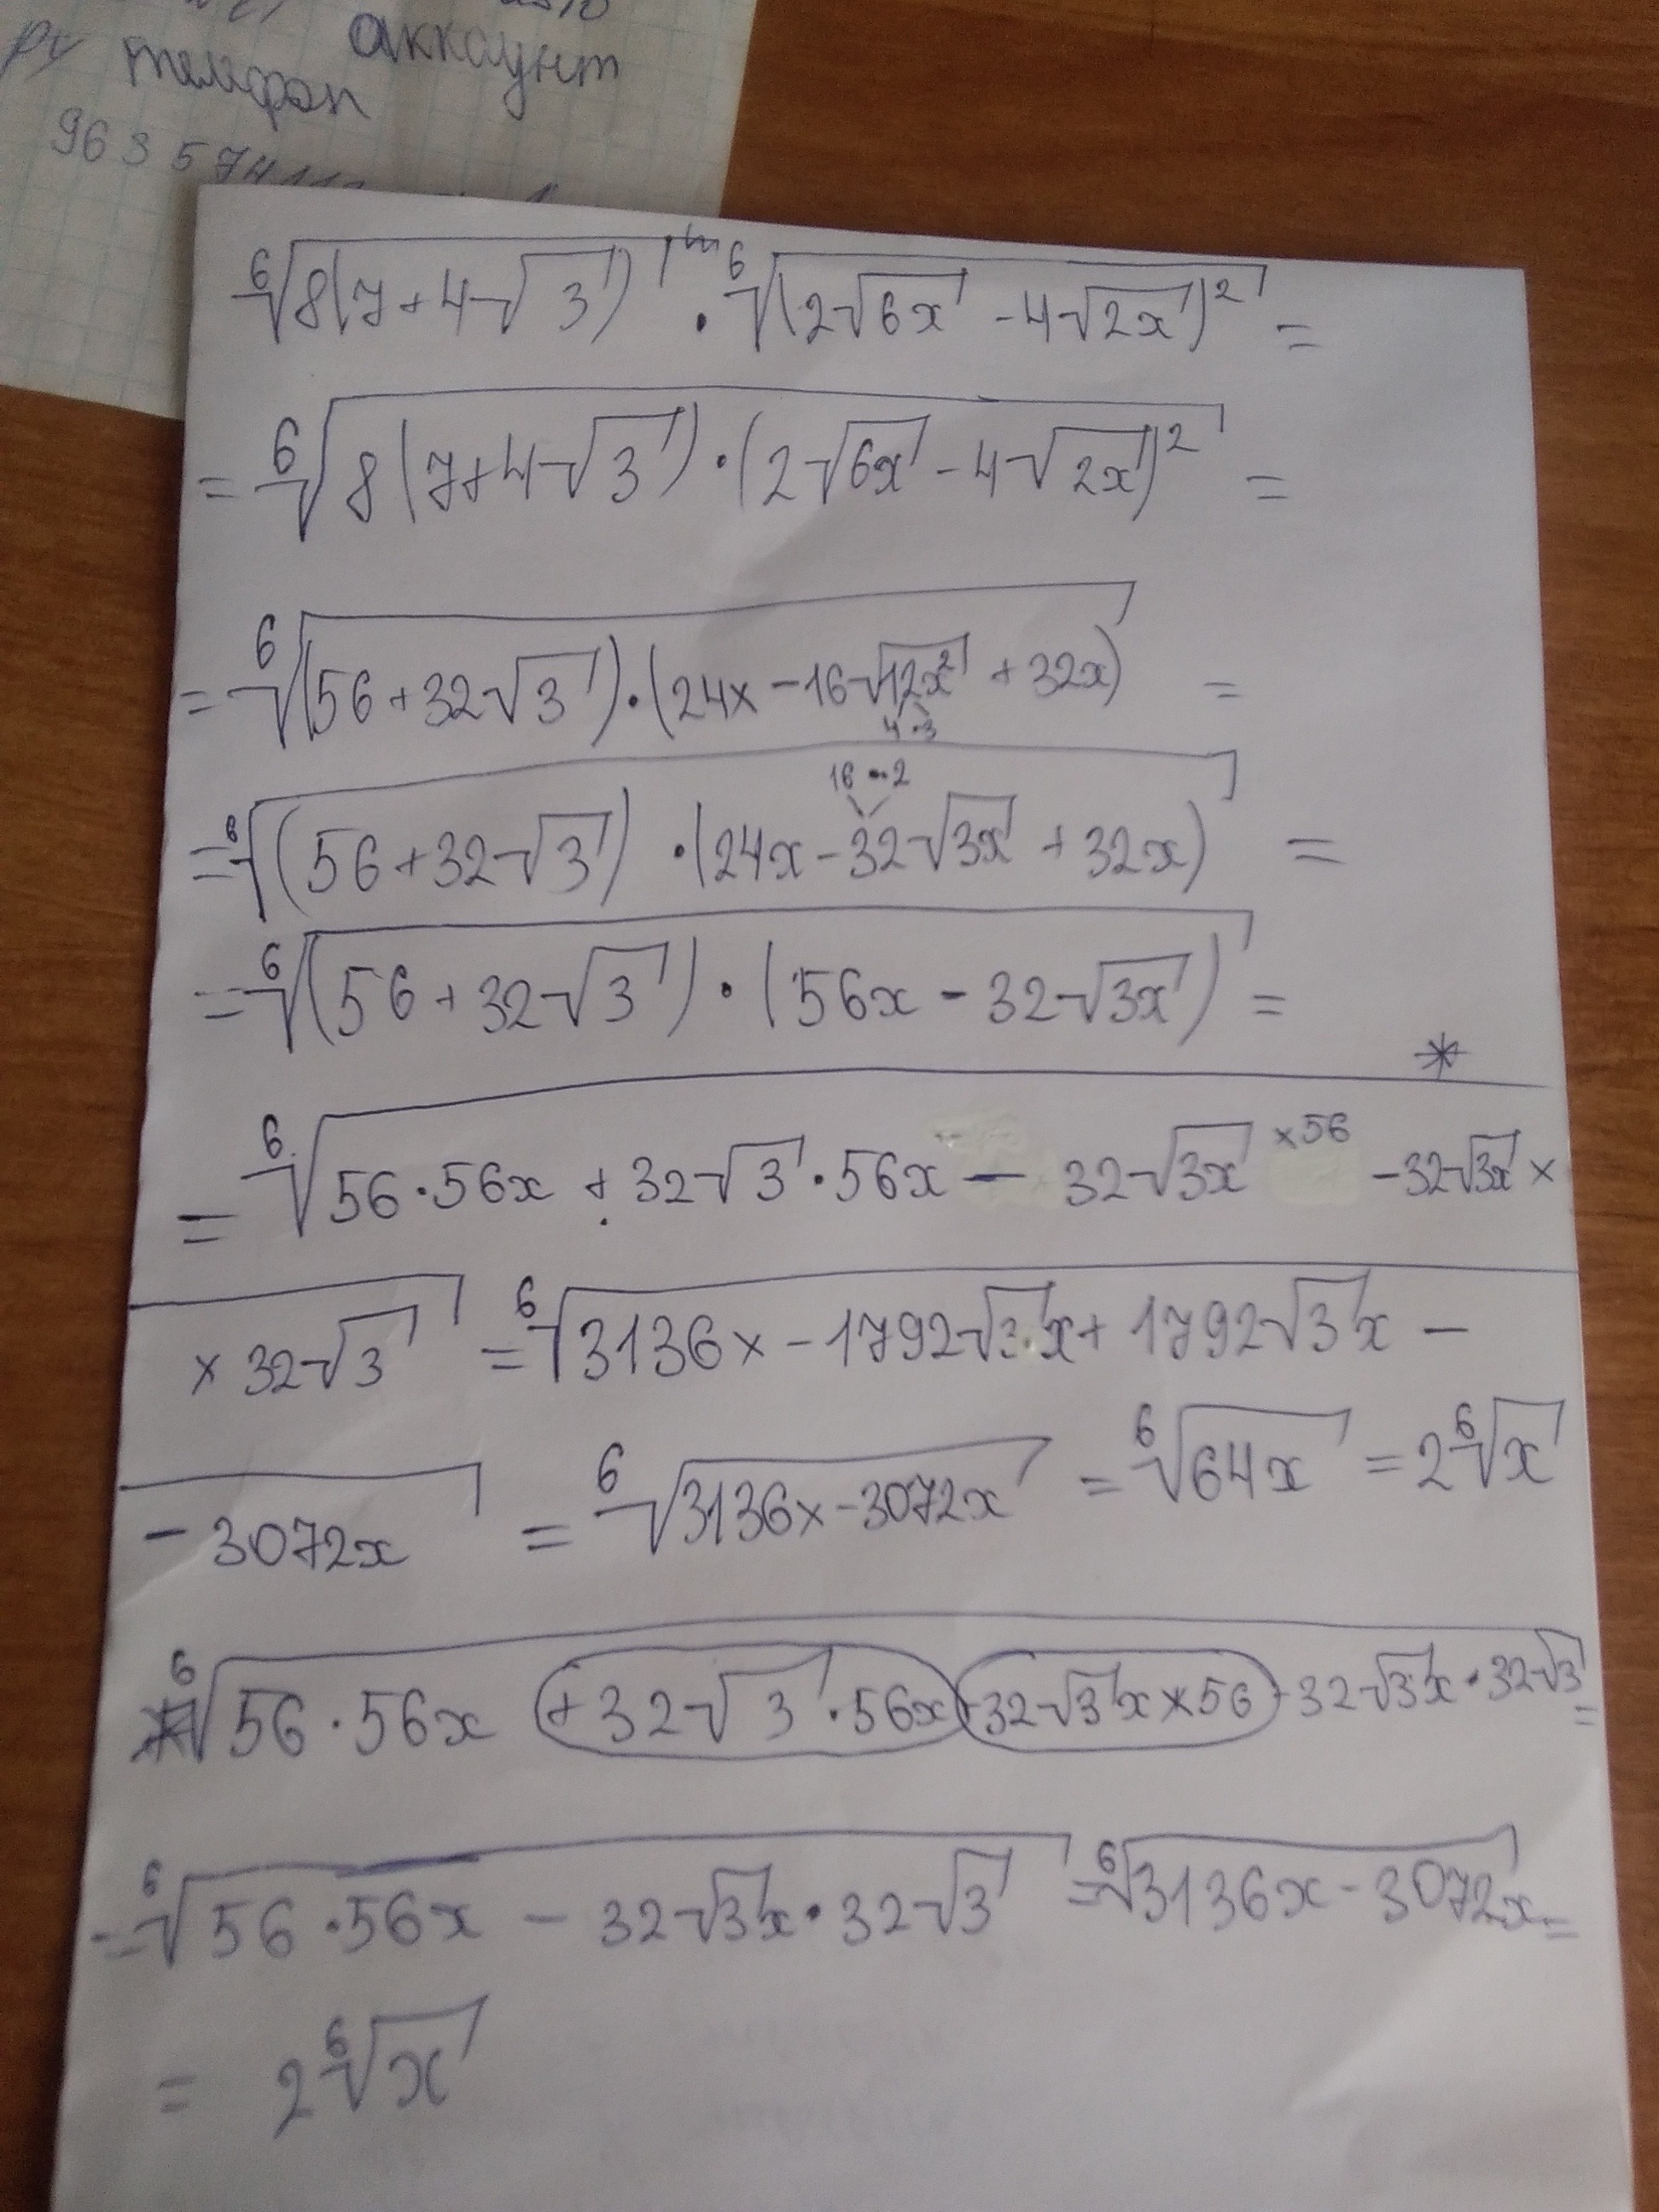 аккаунт
ру телефон
⁶√8(7+4√3) · ⁶√(2√6x - 4√2x)² =
= ⁶√8(7+4√3)·(2√6x - 4√2x)² =
= ⁶√(56+32√3)·(24x - 16√12x² + 32x) =
4·3
16·2
= ⁶√(56+32√3)·(24x - 32√3x + 32x) =
= ⁶√(56+32√3)·(56x - 32√3x) =
*
= ⁶√56·56x + 32√3·56x - 32√3x ×56 - 32√3x ×
× 32√3 = ⁶√3136x - 1792√3x + 1792√3x -
- 3072x = ⁶√3136x - 3072x = ⁶√64x = 2⁶√x
* ⁶√56·56x + 32√3·56x - 32√3x × 56 - 32√3x · 32√3 =
= ⁶√56·56x - 32√3x · 32√3 = ⁶√3136x - 3072x =
= 2⁶√x